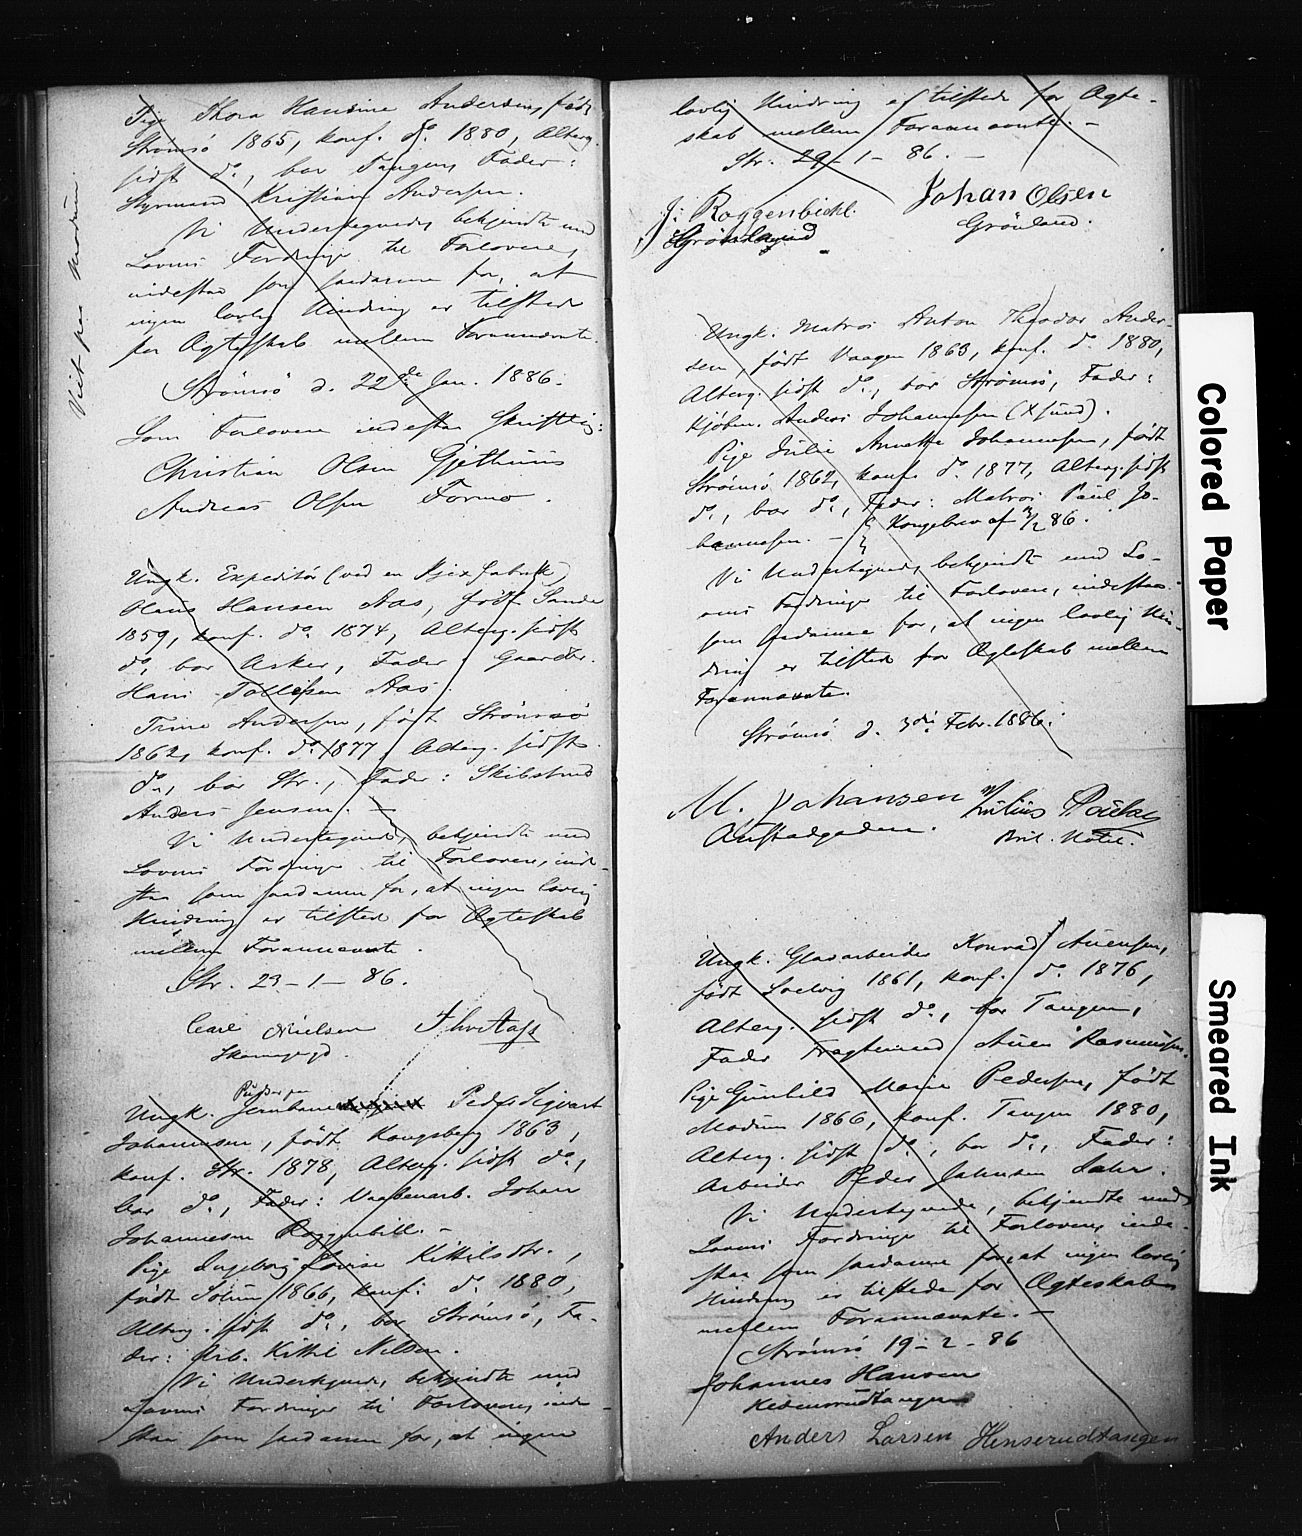 Pige Thora Hansine Andersen, født
Strømsø 1865, konf. do. 1880, Alterg.
sidst do., bor Tangen, Fader:
Styrmand Kristian Andersen.
Vi Undertegnede, bekjendte med
Lovens Fordringe til Forlovere,
indestaa som saadanne for, at
ingen lovlig Hindring er tilstede
for Ægteskab mellem Forannævnte.
Strømsø d. 22de Jan. 1886.
Som Forlovere indestaa Skriftlig:
Christian Olsen Gjethuus
Andreas Olsen Formo.
Viet paa Modum.
Ungk. Expeditør (ved en
Hans Hansen Aas, født Sande
1859, konf. do. 1874, Alterg. sidst
do., bor Asker, Fader: Gaardbr.
Hans Tollefsen Aas.
Trine Andersen, født Strømsø
1862, konf. do. 1877, Alterg. sidst
do., bor Str., Fader: Skibstmd
Anders Jensen. —
Vi Undertegnede, bekjendte med
Lovens Fordringe til Forlovere, inde-
staa som saadanne for, at ingen lovlig
Hindring er tilstede for Ægteskab
mellem Forannævnte.
Str. 23-1-86.
Carl Nielsen
Ungk. Jernbane Peder Sigvart
Johannesen, født Kongsberg 1863,
konf. Str. 1878, Alterg. sidst do.,
bor do., Fader: Vaabenarb. Johan
Johannesen Roggenbikl. —
Pige Ingeborg Lovise Kittilsdtr.,
født Solum 1866, konf. do. 1880,
Alterg. sidst do., bor Strømsø, Fa-
der: Arb. Kittil Nilsen.
Vi Undertegnede, bekjendte med
Lovens Fordringe til Forlovere, inde-
staa som saadanne for, at ingen
lovlig Hindring er tilstede for Ægte-
skab mellem Forannævnte. —
Str. 29-1-86. —
J. Roggenbickl.
Grønland
Johan Olsen
Grønland.
Ungk. Matros Anton Theodor Ander-
sen, født Vaagen 1863, konf. do. 1880,
Alterg. sidst do., bor Strømsø, Fader:
Kjøbm. Anders Johannesen (X sund).
Pige Julie Annette Johannesen, født
Strømsø 1862, konf. do. 1877, Alterg. sidst
do., bor do., Fader: Matros Paul Jo-
hannesen. — Kongebrev af /2 86.
Vi Undertegnede, bekjendte med Lo-
vens Fordringe til Forlovere, indestaa
som saadanne for, at ingen lovlig Hin-
dring er tilstede for Ægteskab mellem
Forannævnte.
Strømsø d. 3die Febr. 1886.
M. Johansen
Austadgaden.
Julius
Brit. Hotel.
Ungk. Glasarbeider Konrad Auensen,
født Solvig 1861, konf. do. 1876,
Alterg. sidst do., bor Tangen,
Fader Fragtemand Auen Rasmussen.
Pige Gunhild Marie Pedersen, født
Modum 1866, konf. Tangen 1880,
Alterg. sidst do., bor do., Fader:
Arbeider Peder Johnsen
Vi Undertegnede, bekjendte med
Lovens Fordringe til Forlovere, inde-
staa som saadanne for, at ingen lovlig
Hindring er tilstede for Ægteskab
mellem Forannævnte. —
Strømsø 19-2-86
Johannes Hansen
Anders Larsen Henserudtangen
Colored Paper
Smeared Ink